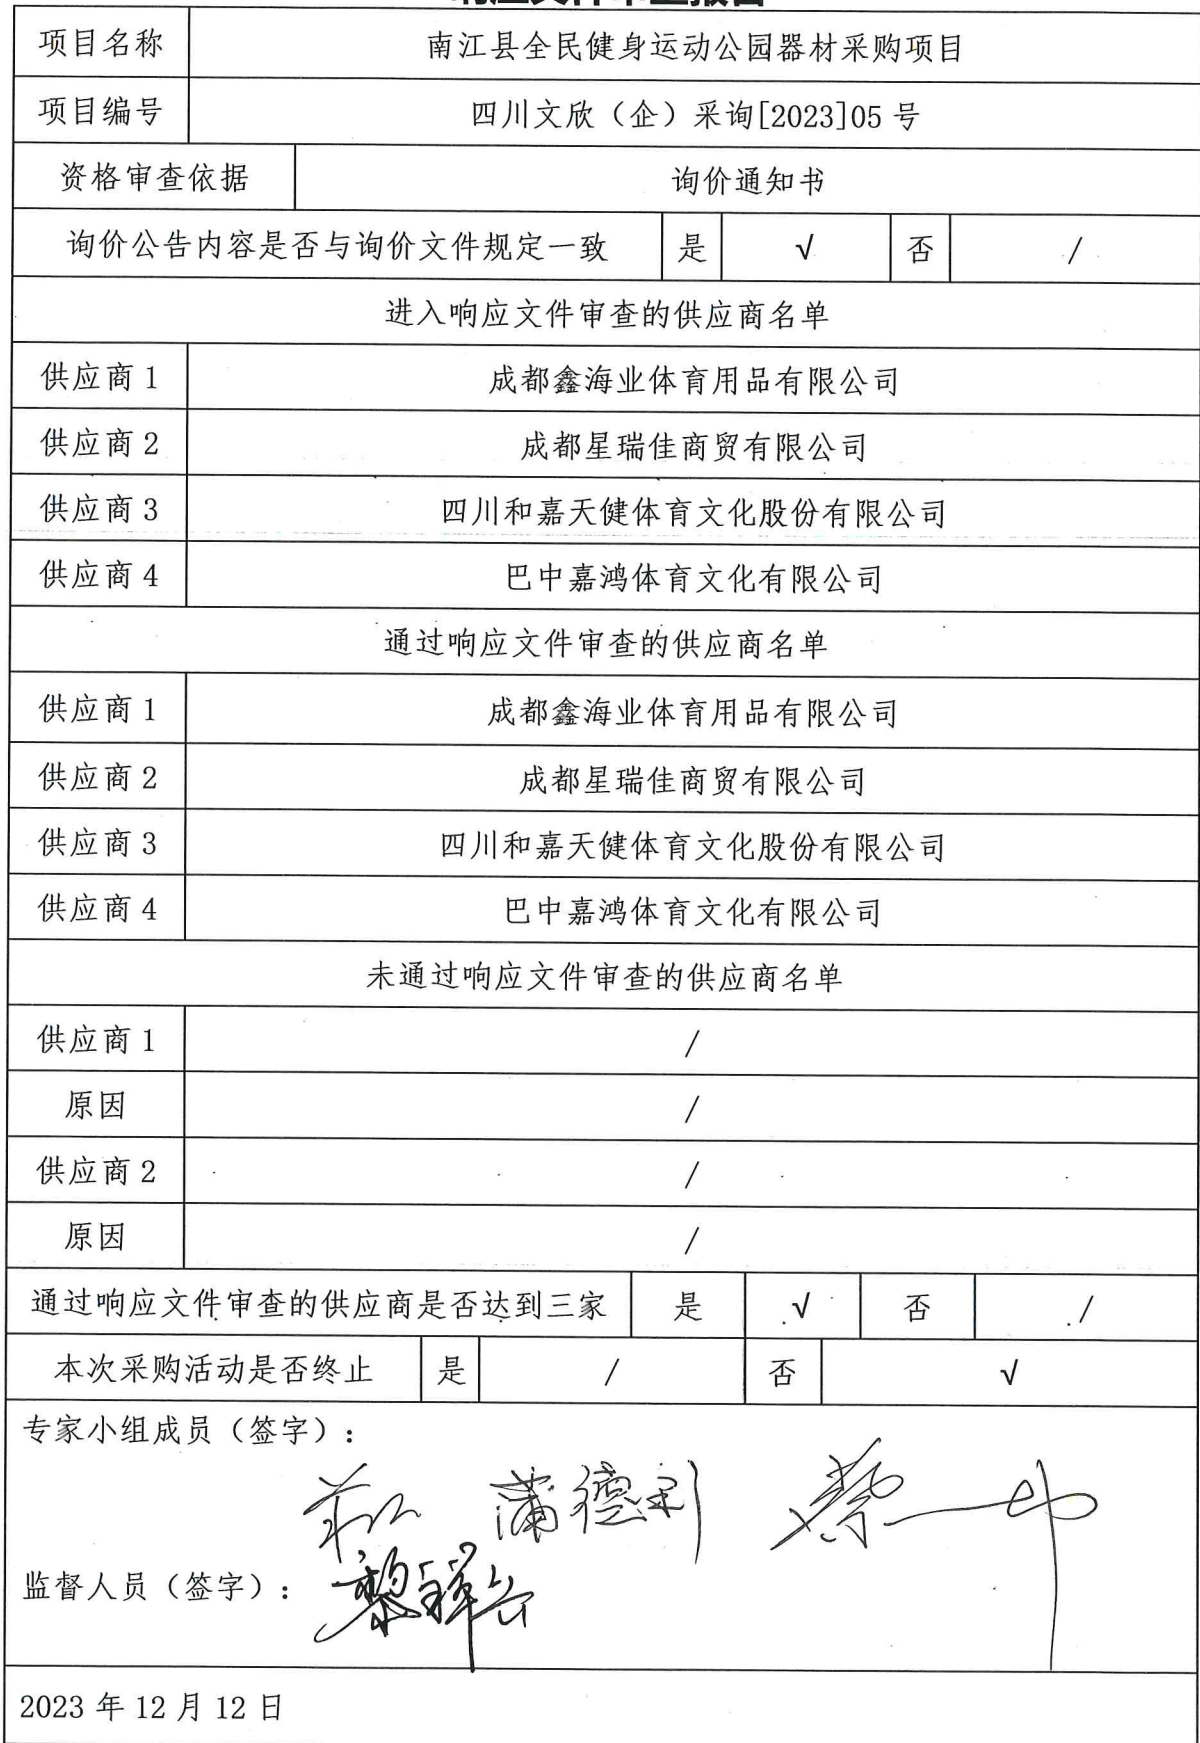 项目名称 南江县全民健身运动公园器材采购项目
项目编号 四川文欣（企）采询[2023]05号
资格审查依据 询价通知书
询价公告内容是否与询价文件规定一致 是 √ 否 /
进入响应文件审查的供应商名单
供应商1 成都鑫海业体育用品有限公司
供应商2 成都星瑞佳商贸有限公司
供应商3 四川和嘉天健体育文化股份有限公司
供应商4 巴中嘉鸿体育文化有限公司
通过响应文件审查的供应商名单
供应商1 成都鑫海业体育用品有限公司
供应商2 成都星瑞佳商贸有限公司
供应商3 四川和嘉天健体育文化股份有限公司
供应商4 巴中嘉鸿体育文化有限公司
未通过响应文件审查的供应商名单
供应商1 /
原因 /
供应商2 /
原因 /
通过响应文件审查的供应商是否达到三家 是 √ 否 /
本次采购活动是否终止 是 / 否 √
专家小组成员（签字）：
监督人员（签字）：
2023年12月12日